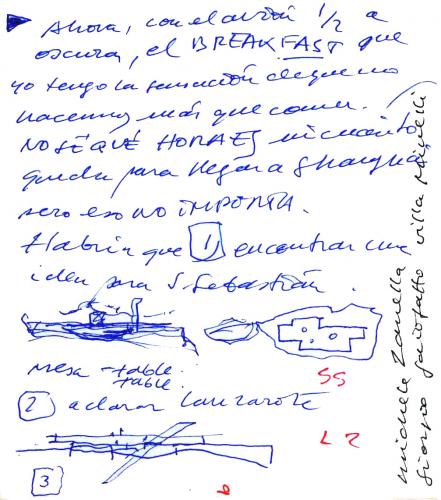 Ahora, con el avión 1/2 a
oscura, el BREAKFAST que
yo tengo la sensación de que no
hacemos más que comer.
NO SÉ QUÉ HORA ES, ni cuánto
queda para llegar a Shanghai,
pero eso NO IMPORTA.
Habría que 1, encontrar una
idea para S. Sebastián.
mesa - table.
table.
SS
2 aclarar Lanzarote
LZ
3
michele Zanella
giorgio villa